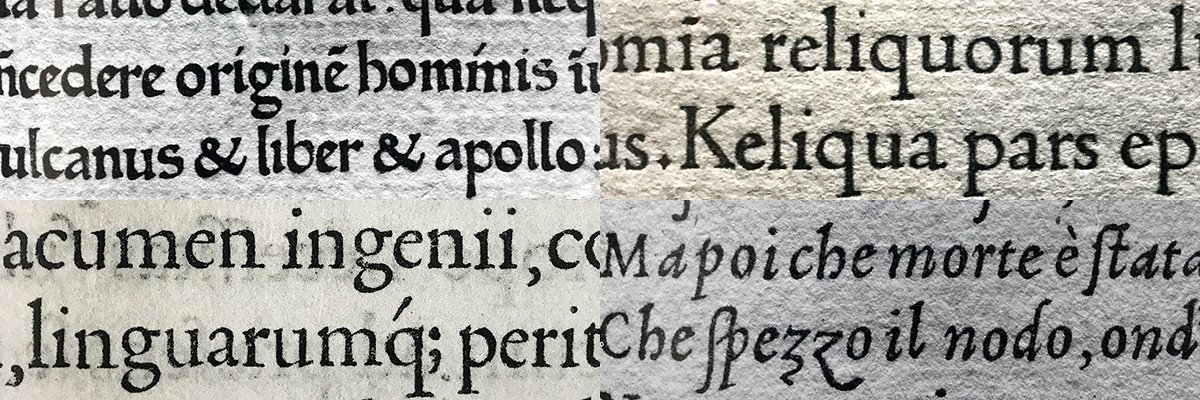 ia ratio declarat: qua neq
ncedere originē hominis iu
ulcanus & liber & apollo:
omīa reliquorum l
us. Keliqua pars ep
acumen ingenii, co
, linguarumq́; perit
Ma poi che morte è ſtata
Che ſpezzo il nodo, ond